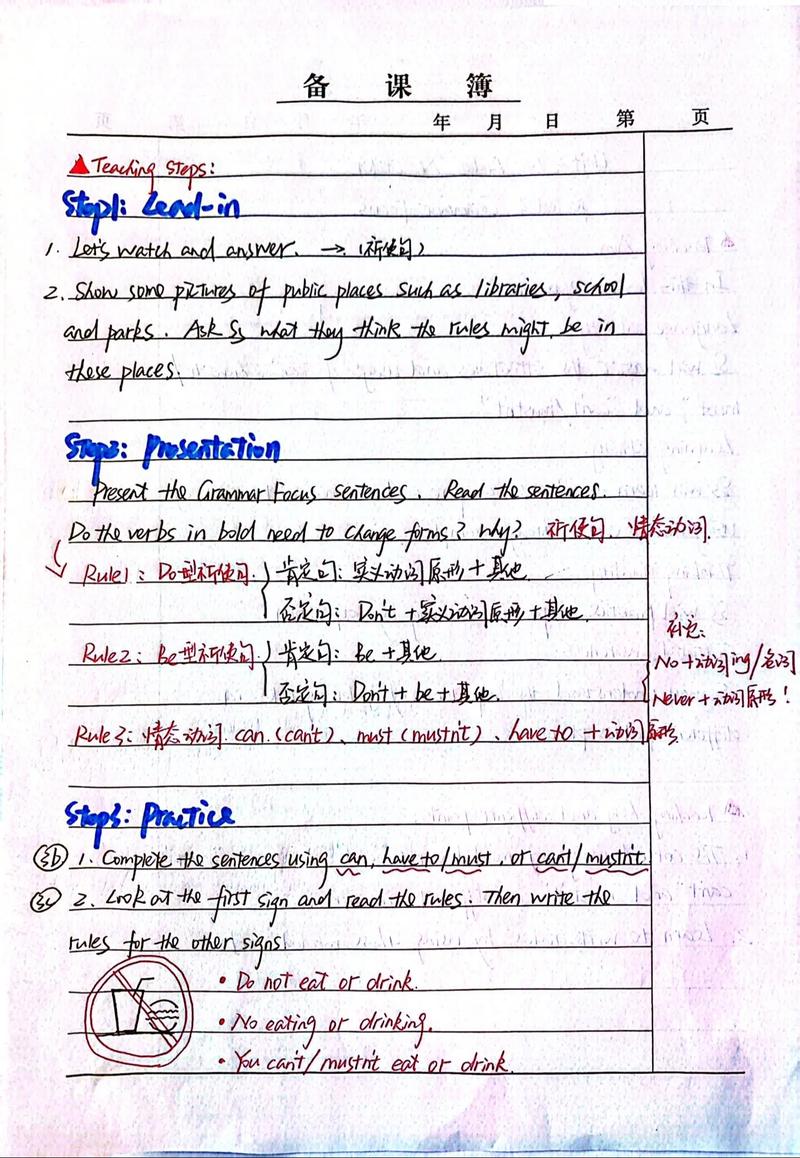 备 课 簿
年 月 日 第 页
Teaching steps:
Step1: Lead-in
1. Let's watch and answer. → (祈使句)
2. Show some pictures of public places such as libraries, school
and parks. Ask Ss what they think the rules might be in
these places.
Step2: Presentation
Present the Grammar Focus sentences. Read the sentences.
Do the verbs in bold need to change forms? Why? 祈使句、情态动词.
Rule1: Do型祈使句 { 肯定句: 实义动词原形+其他.
否定句: Don't+实义动词原形+其他.
Rule2: Be型祈使句 { 肯定句: Be+其他.
否定句: Don't+be+其他.
补充:
No+动词ing/名词
Never+动词原形!
Rule3: 情态动词. can (can't)、must (mustn't)、have to +动词原形
Step3: Practice
3b 1. Complete the sentences using can, have to/must, or can't/mustn't.
3c 2. Look at the first sign and read the rules. Then write the
rules for the other signs.
• Do not eat or drink.
• No eating or drinking.
• You can't/mustn't eat or drink.